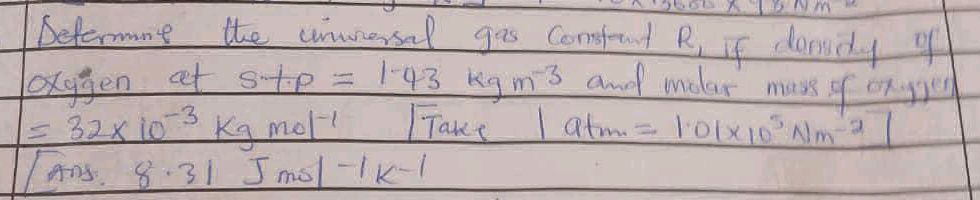 × 13600 × 9.8 Nm⁻²
Determine the universal gas constant R, if density of
oxygen at s.t.p = 1.43 kg m⁻³ and molar mass of oxygen
= 32×10⁻³ kg mol⁻¹ [Take 1 atm = 1.01×10⁵ Nm⁻²]
[Ans. 8.31 J mol⁻¹K⁻¹